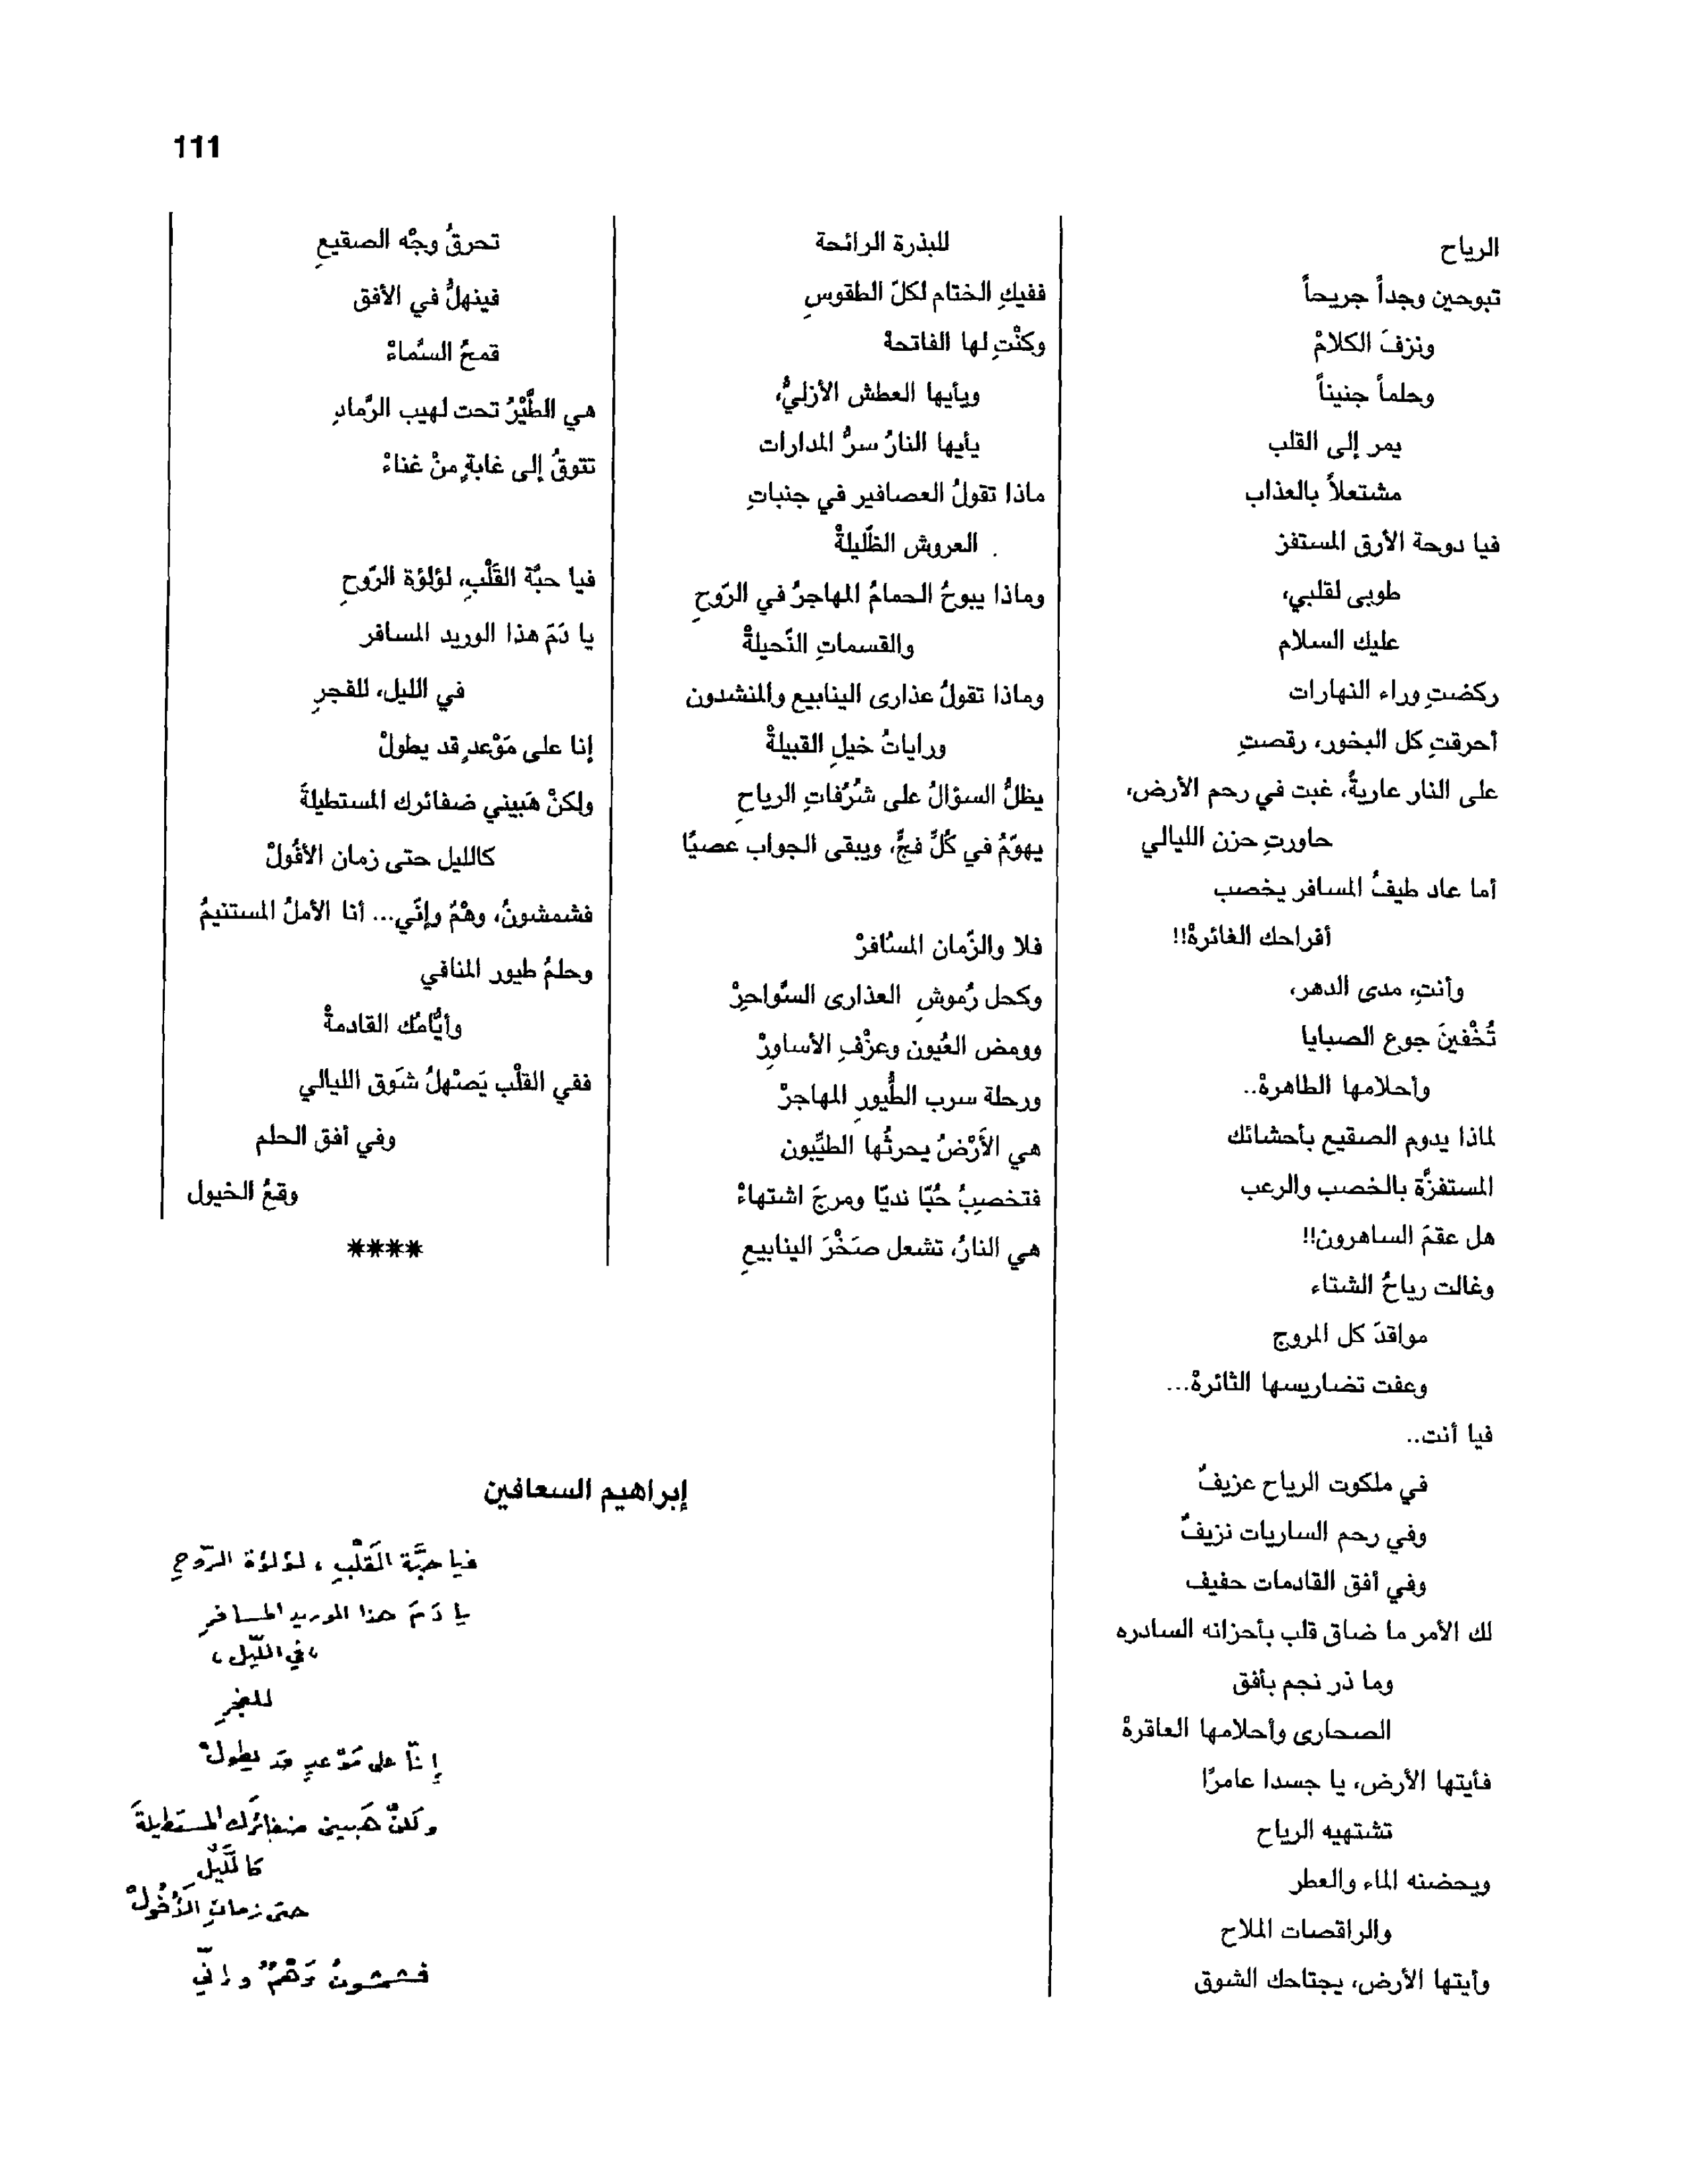 111
الرياح
تبوحين وجداً جريحاً
ونزفَ الكلامْ
وحلماً جنيناً
يمر إلى القلب
مشتعلاً بالعذاب
فيا دوحة الأرق المستفز
طوبى لقلبي،
عليك السلام
ركضتِ وراء النهارات
أحرقتِ كل البخور، رقصتِ
على النار عاريةً، غبت في رحم الأرض،
حاورتِ حزن الليالي
أما عاد طيفُ المسافر يخصب
أقراحك الغائرهْ!!
وأنتِ، مدى الدهر،
تُخْفينَ جوع الصبايا
وأحلامها الطاهرهْ..
لماذا يدوم الصقيع بأحشائك
المستفزَّة بالخصب والرعب
هل عقمَ الساهرون!!
وغالت رياحُ الشتاء
مواقدَ كل المروج
وعفت تضاريسها الثائرهْ...
فيا أنت..
في ملكوت الرياح عزيفٌ
وفي رحم الساريات نزيفٌ
وفي أفق القادمات حفيف
لك الأمر ما ضاق قلب بأحزانه السادره
وما ذر نجم بأفق
الصحارى وأحلامها العاقرهْ
فأيتها الأرض، يا جسدا عامرًا
تشتهيه الرياح
ويحضنه الماء والعطر
والراقصات الملاح
وأيتها الأرض، يجتاحك الشوق
للبذرة الرائحة
ففيكِ الختام لكلّ الطقوسِ
وكنْتِ لها الفاتحهْ
ويأيها العطش الأزليُّ،
يأيها النارُ سرُّ المدارات
ماذا تقولُ العصافير في جنباتِ
العروش الظّليلهْ
وماذا يبوحُ الحمامُ المهاجرُ في الرّوحِ
والقسماتِ النّحيلهْ
وماذا تقولُ عذارى الينابيع والمنشدون
وراياتُ خيلِ القبيلهْ
يظلُّ السؤالُ على شُرُفاتِ الرياحِ
يهوّمُ في كُلِّ فجٍّ، ويبقى الجواب عصيًا
فلا والزّمان المسُافرْ
وكحل رُموشِ العذارى السَّواحِرْ
وومض العُيون وعزْفِ الأساورْ
ورحلة سرب الطُّيورِ المهاجرْ
هي الأَرْضُ يحرثُها الطيِّبون
فتخصبِبُ حُبّا نديّا ومرجَ اشتهاءْ
هي النارُ، تشعل صَخْرَ الينابيعِ
تحرقُ وجْه الصقيعِ
فينهلُّ في الأفق
قمحُ السَّماءْ
هي الطَّيْرُ تحت لهيب الرَّمادِ
تتوقُ إلى غابةٍ منْ غناءْ
فيا حبَّة القَلْبِ، لؤلؤة الرّوحِ
يا دَمَ هذا الوريد المسافر
في الليل، للفجرِ
إنا على مَوْعدٍ قد يطولْ
ولكنْ هَبيني ضفائرك المستطيلةَ
كالليل حتى زمان الأفُولْ
فشمشونُ، وهْمُ وإنّي... أنا الأملُ المستنيمُ
وحلمُ طيور المنافي
وأيَّامُك القادمهْ
ففي القلْب يَصْهلُ شَوق الليالي
وفي أفق الحلم
وقعُ الخيول
****
إبراهيم السعافين
فيا حبَّة القَلْبِ، لؤلؤة الرّوحِ
يا دَمَ هذا الوريد المسافرِ
في اللّيل،
للفجرِ
إنّا على مَوْعدٍ قد يطولْ
ولكنْ هَبيني ضفائرَك المستطيلةَ
كاللَّيل
حتى زمانِ الأُفُولْ
فشمشونُ وَهْمٌ وإنّي